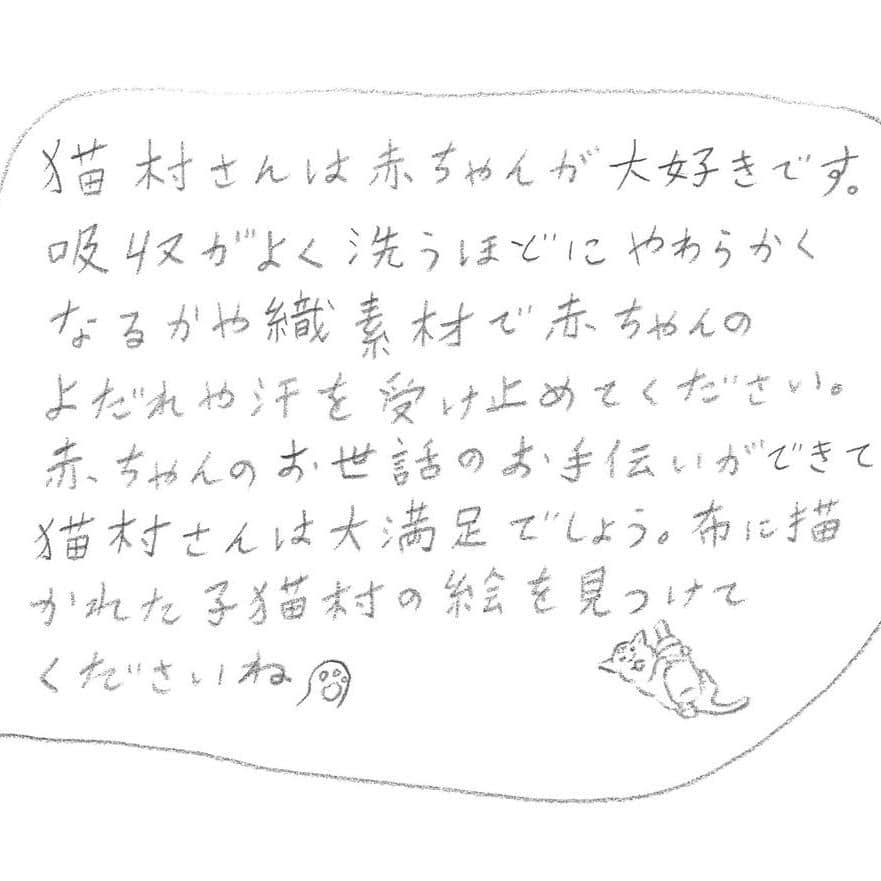 猫村さんは赤ちゃんが大好きです。
吸収がよく洗うほどにやわらかく
なるかや織素材で赤ちゃんの
よだれや汗を受け止めてください。
赤ちゃんのお世話のお手伝いができて
猫村さんは大満足でしょう。布に描
かれた子猫村の絵を見つけて
くださいね